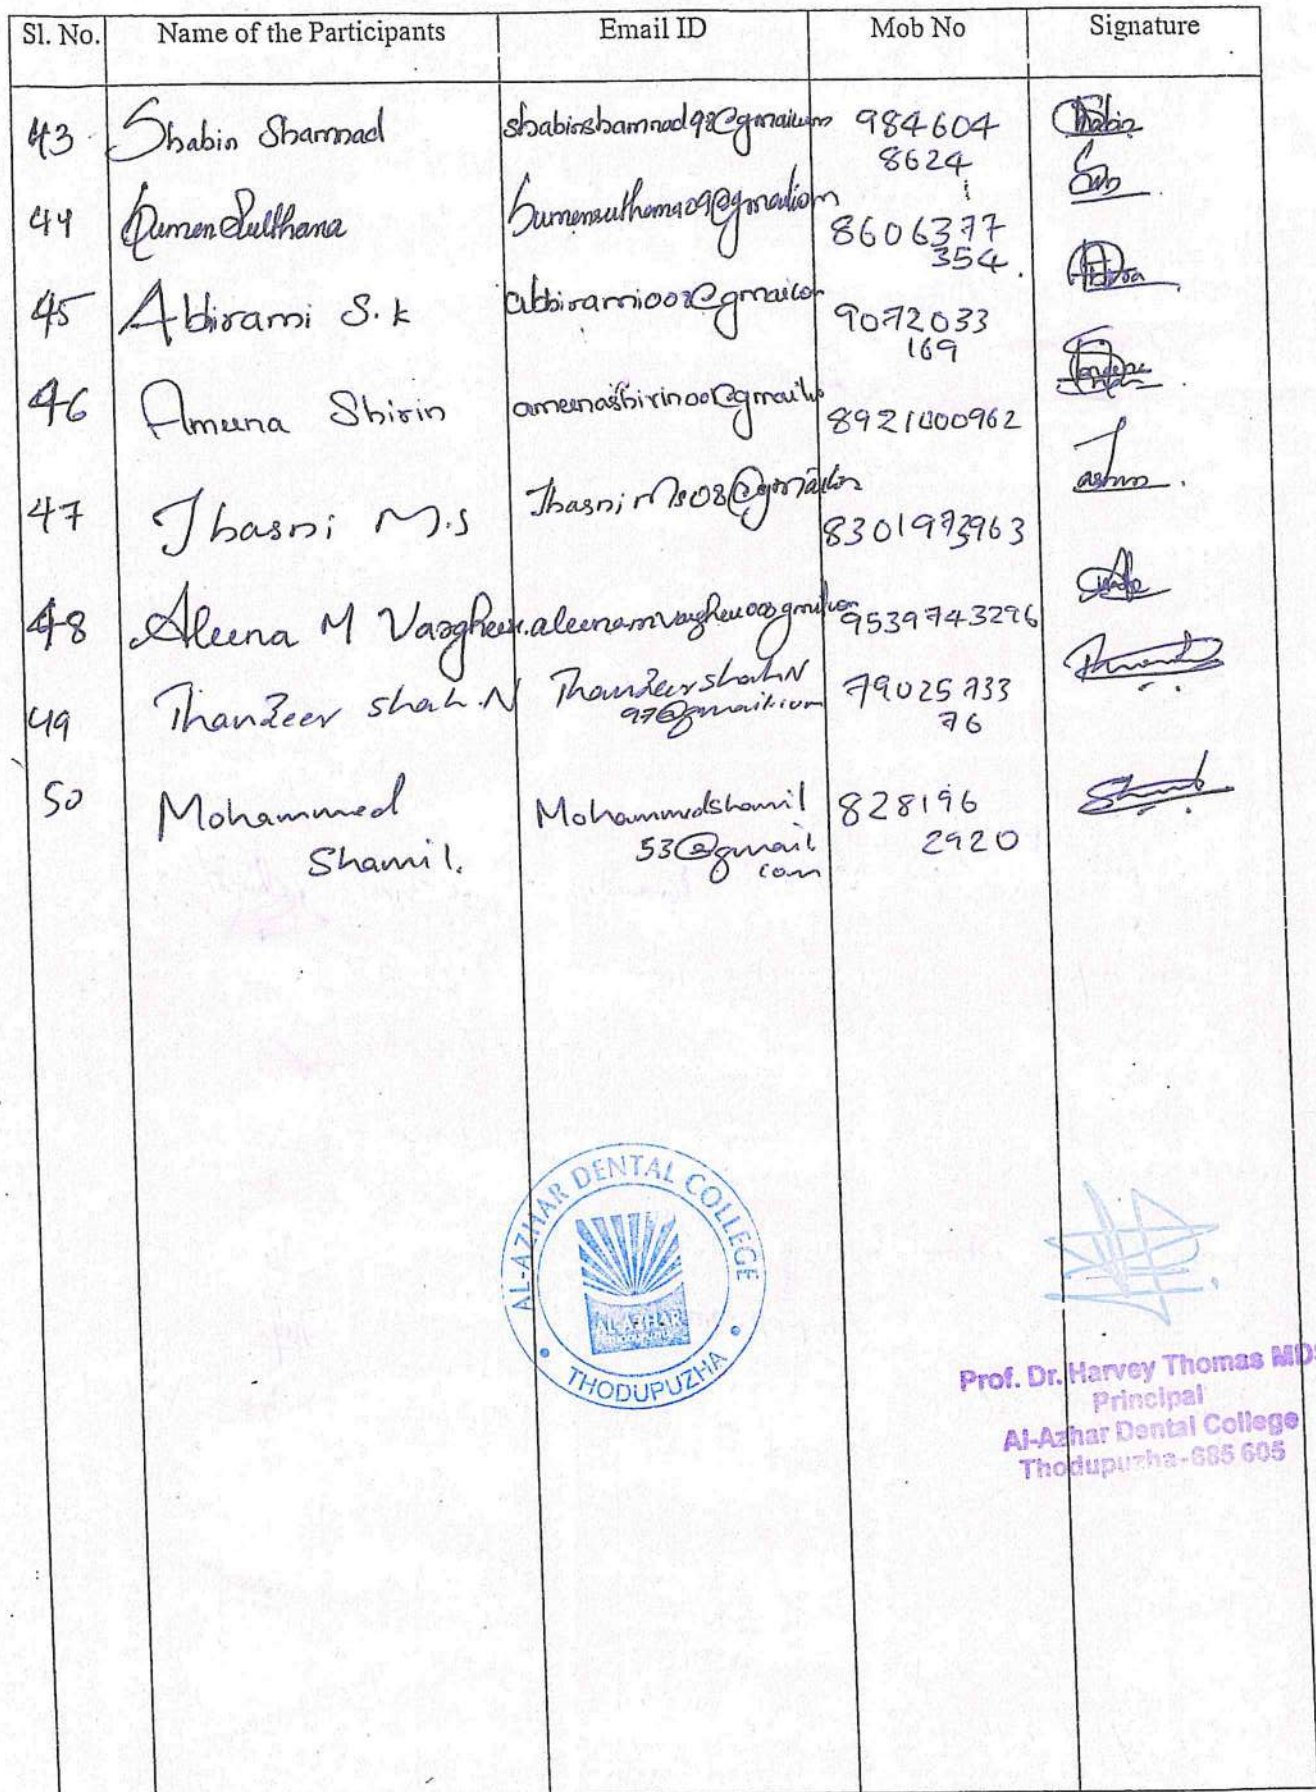 Sl. No. Name of the Participants Email ID Mob No Signature
43 Shabin Shamnad shabinshamnad98@gmail.com 984604
8624
44 Sumen Sulthana 8606377
354
45 Abirami S.k abiramioo2@gmail.com 9072033
169
46 Ameena Shirin ameenashirinoo1@gmail.com 8921400962
47 Thasni M.S Thasnims08@gmail.com 8301973963
48 Aleena M Varghese 9539743296
49 Thanzeer shah.N ThanzeershahN 79025733
97@gmail.com 76
50 Mohammed Mohammedshamil 828196
Shamil. 53@gmail 2920
com
AL-AZHAR DENTAL COLLEGE
AL-AZHAR
THODUPUZHA
Prof. Dr. Harvey Thomas MDS
Principal
Al-Azhar Dental College
Thodupuzha-685 605